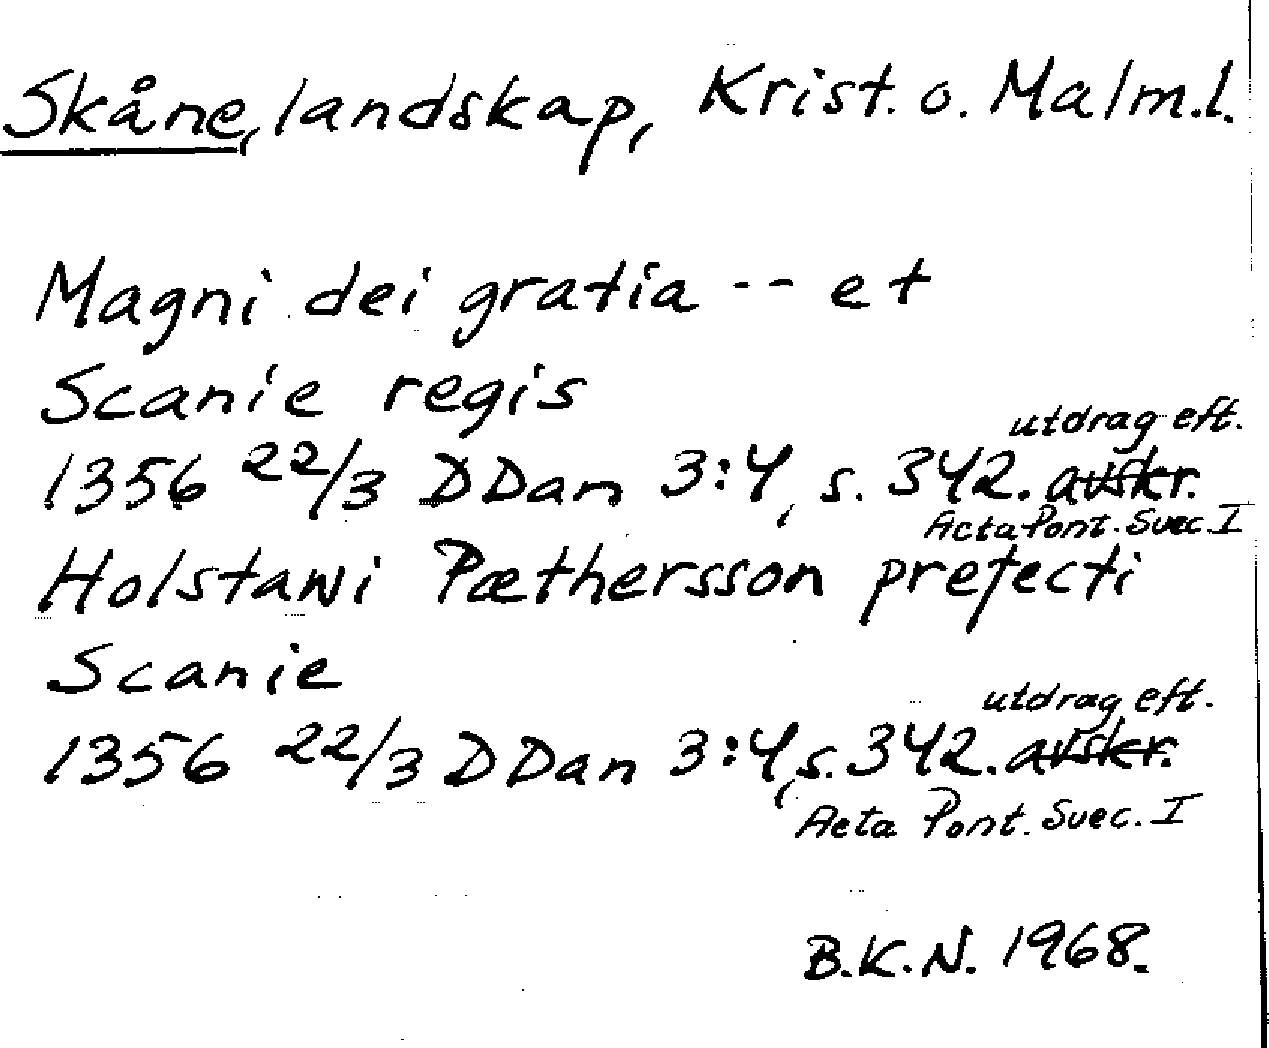 Skåne, landskap, Krist. o. Malm.l.
Magni dei gratia -- et
Scanie regis
utdrag eft.
1356 22/3 DDan 3:4, s. 342. avskr.
Acta Pont. Suec. I
Holstawi Pæthersson prefecti
Scanie
utdrag eft.
1356 22/3 DDan 3:4, s. 342. avskr.
Acta Pont. Suec. I
B.K.N. 1968.